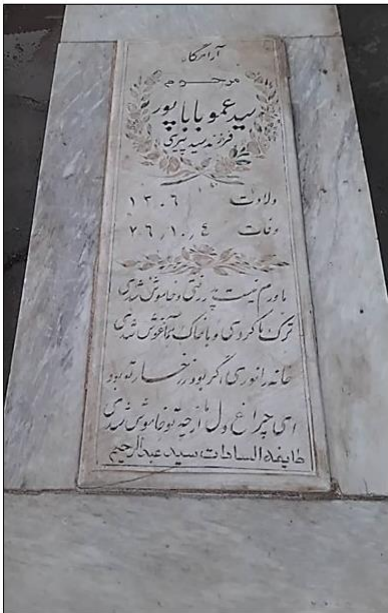 آرامگاه
مرحوم
سید عمو باباپور
فرزند سید پیری
ولادت ۱۳۰۶
وفات ۷۶/۱۰/۴
باورم نیست پدر رفتی و خاموش شدی
ترک ما کردی و با خاک هم‌آغوش شدی
خانه را نوری اگر بود ز رخسار تو بود
ای چراغ دل ما از چه تو خاموش شدی
طایفه السادات سید عبدالرحیم